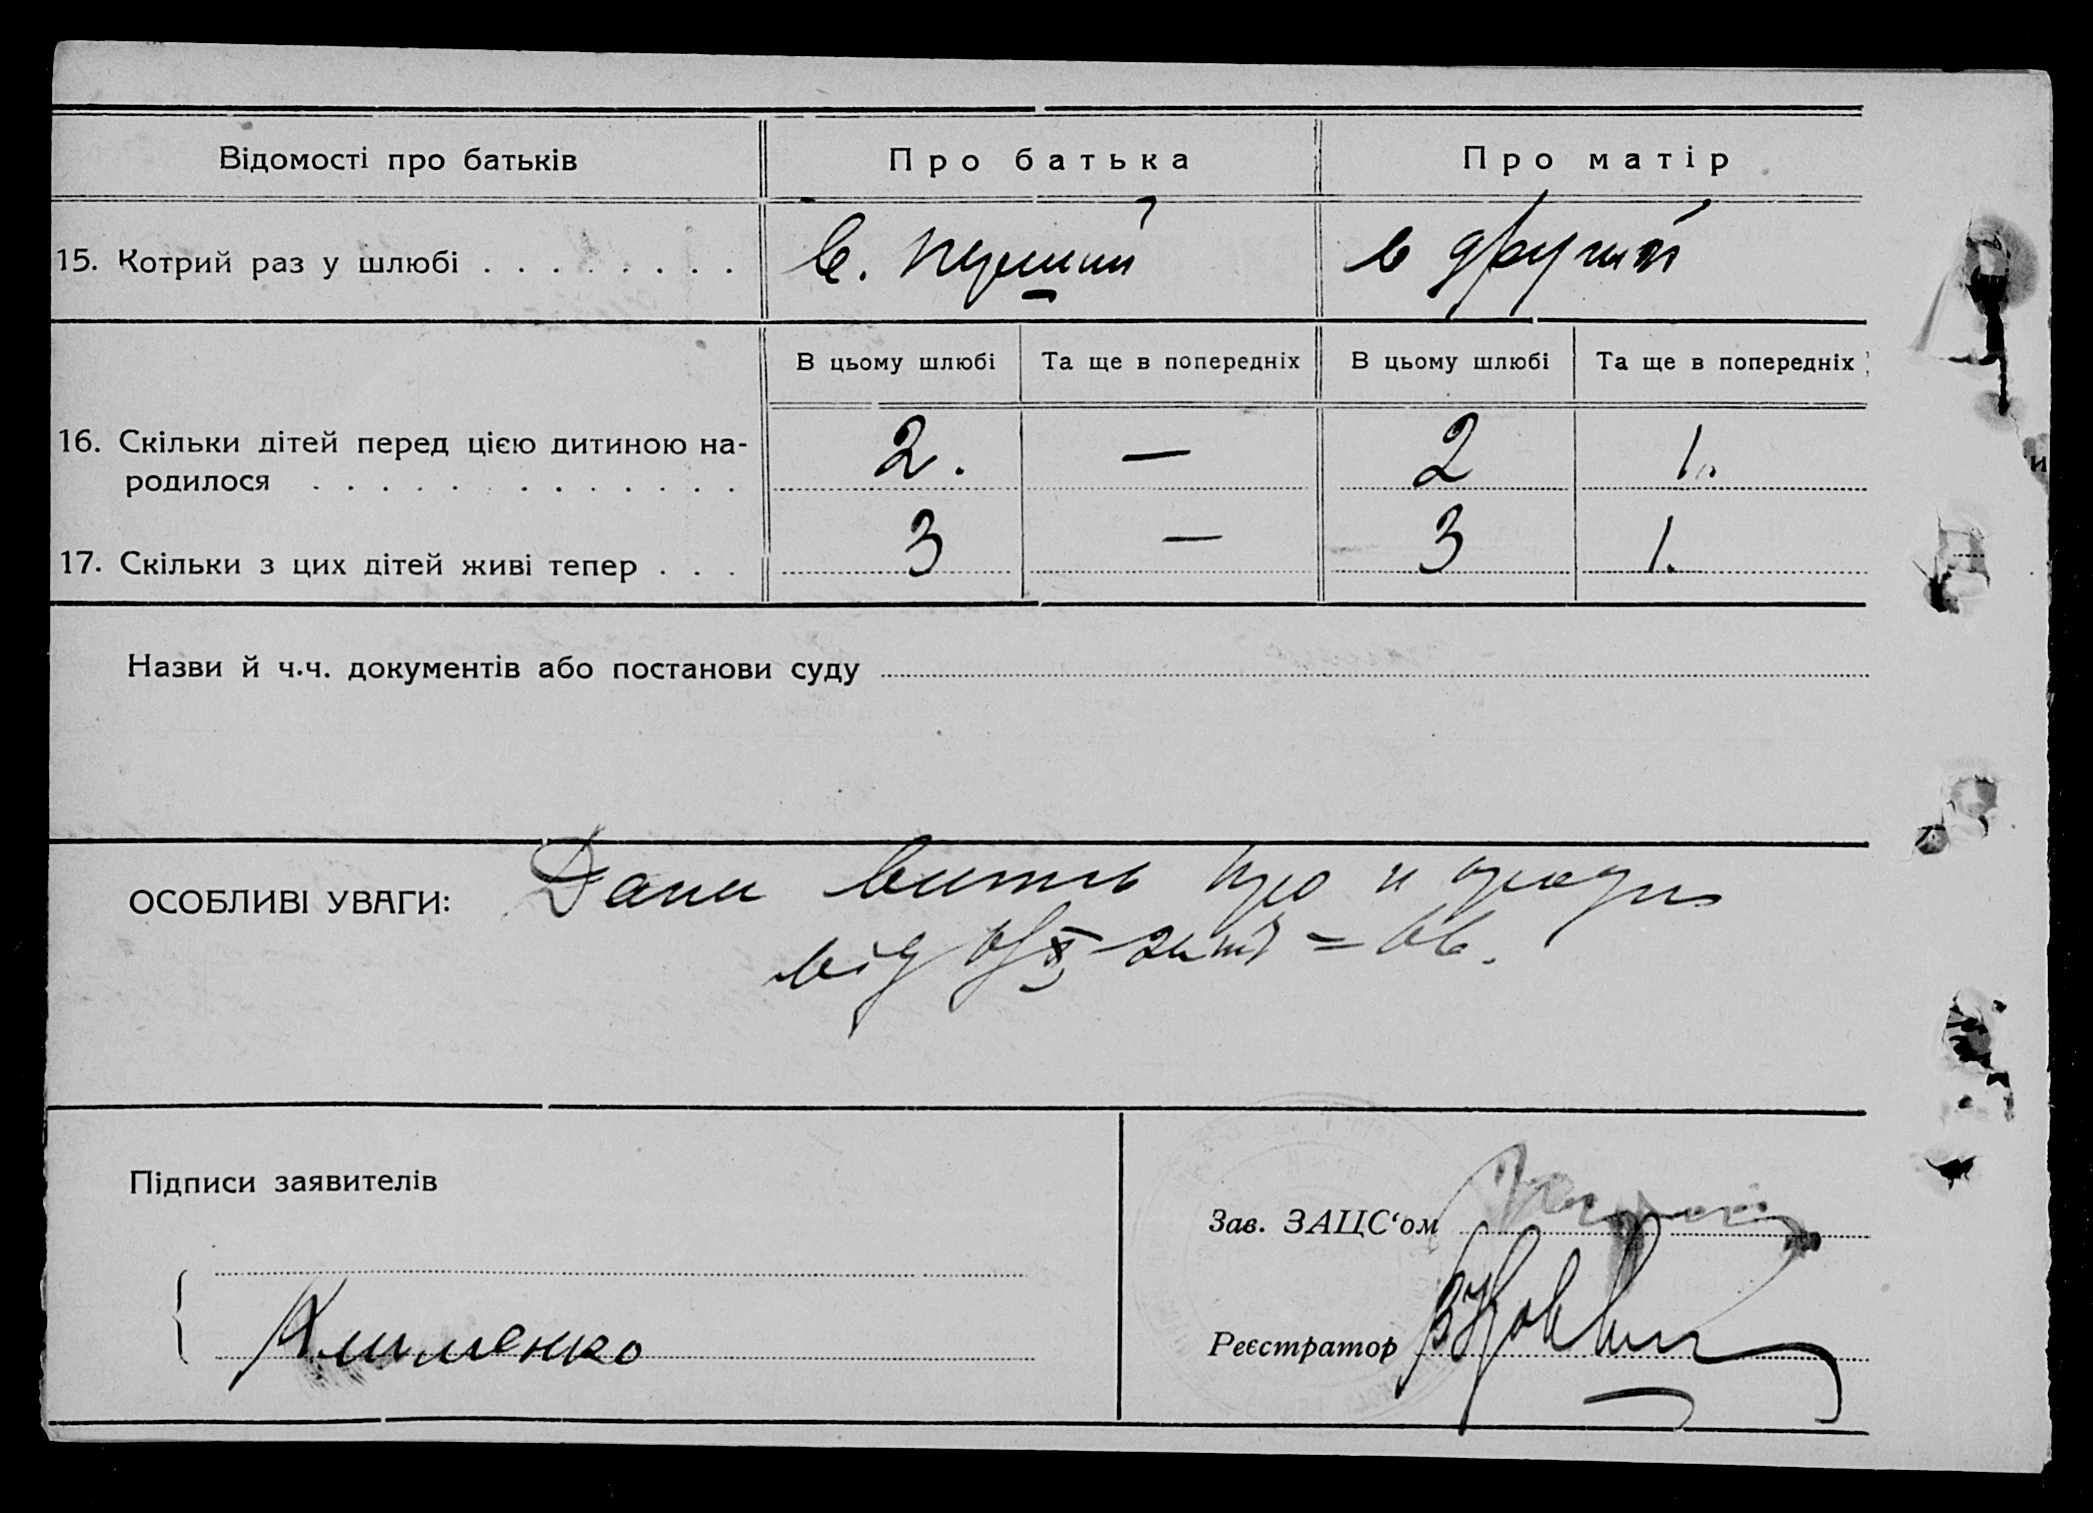 Відомості про батьків
Про батька
Про матір
15. Котрий раз у шлюбі . . . . . . . .
в. перший
в другий
В цьому шлюбі
Та ще в попередніх
В цьому шлюбі
Та ще в попередніх
16. Скільки дітей перед цією дитиною на-
родилося . . . . . . . . . . . . .
2.
—
2
1.
17. Скільки з цих дітей живі тепер . . .
3
—
3
1.
Назви й ч.ч. документів або постанови суду
ОСОБЛИВІ УВАГИ:
Дана про
від
Підписи заявителів
Клименко
Зав. ЗАЦС‘ом
Реєстратор